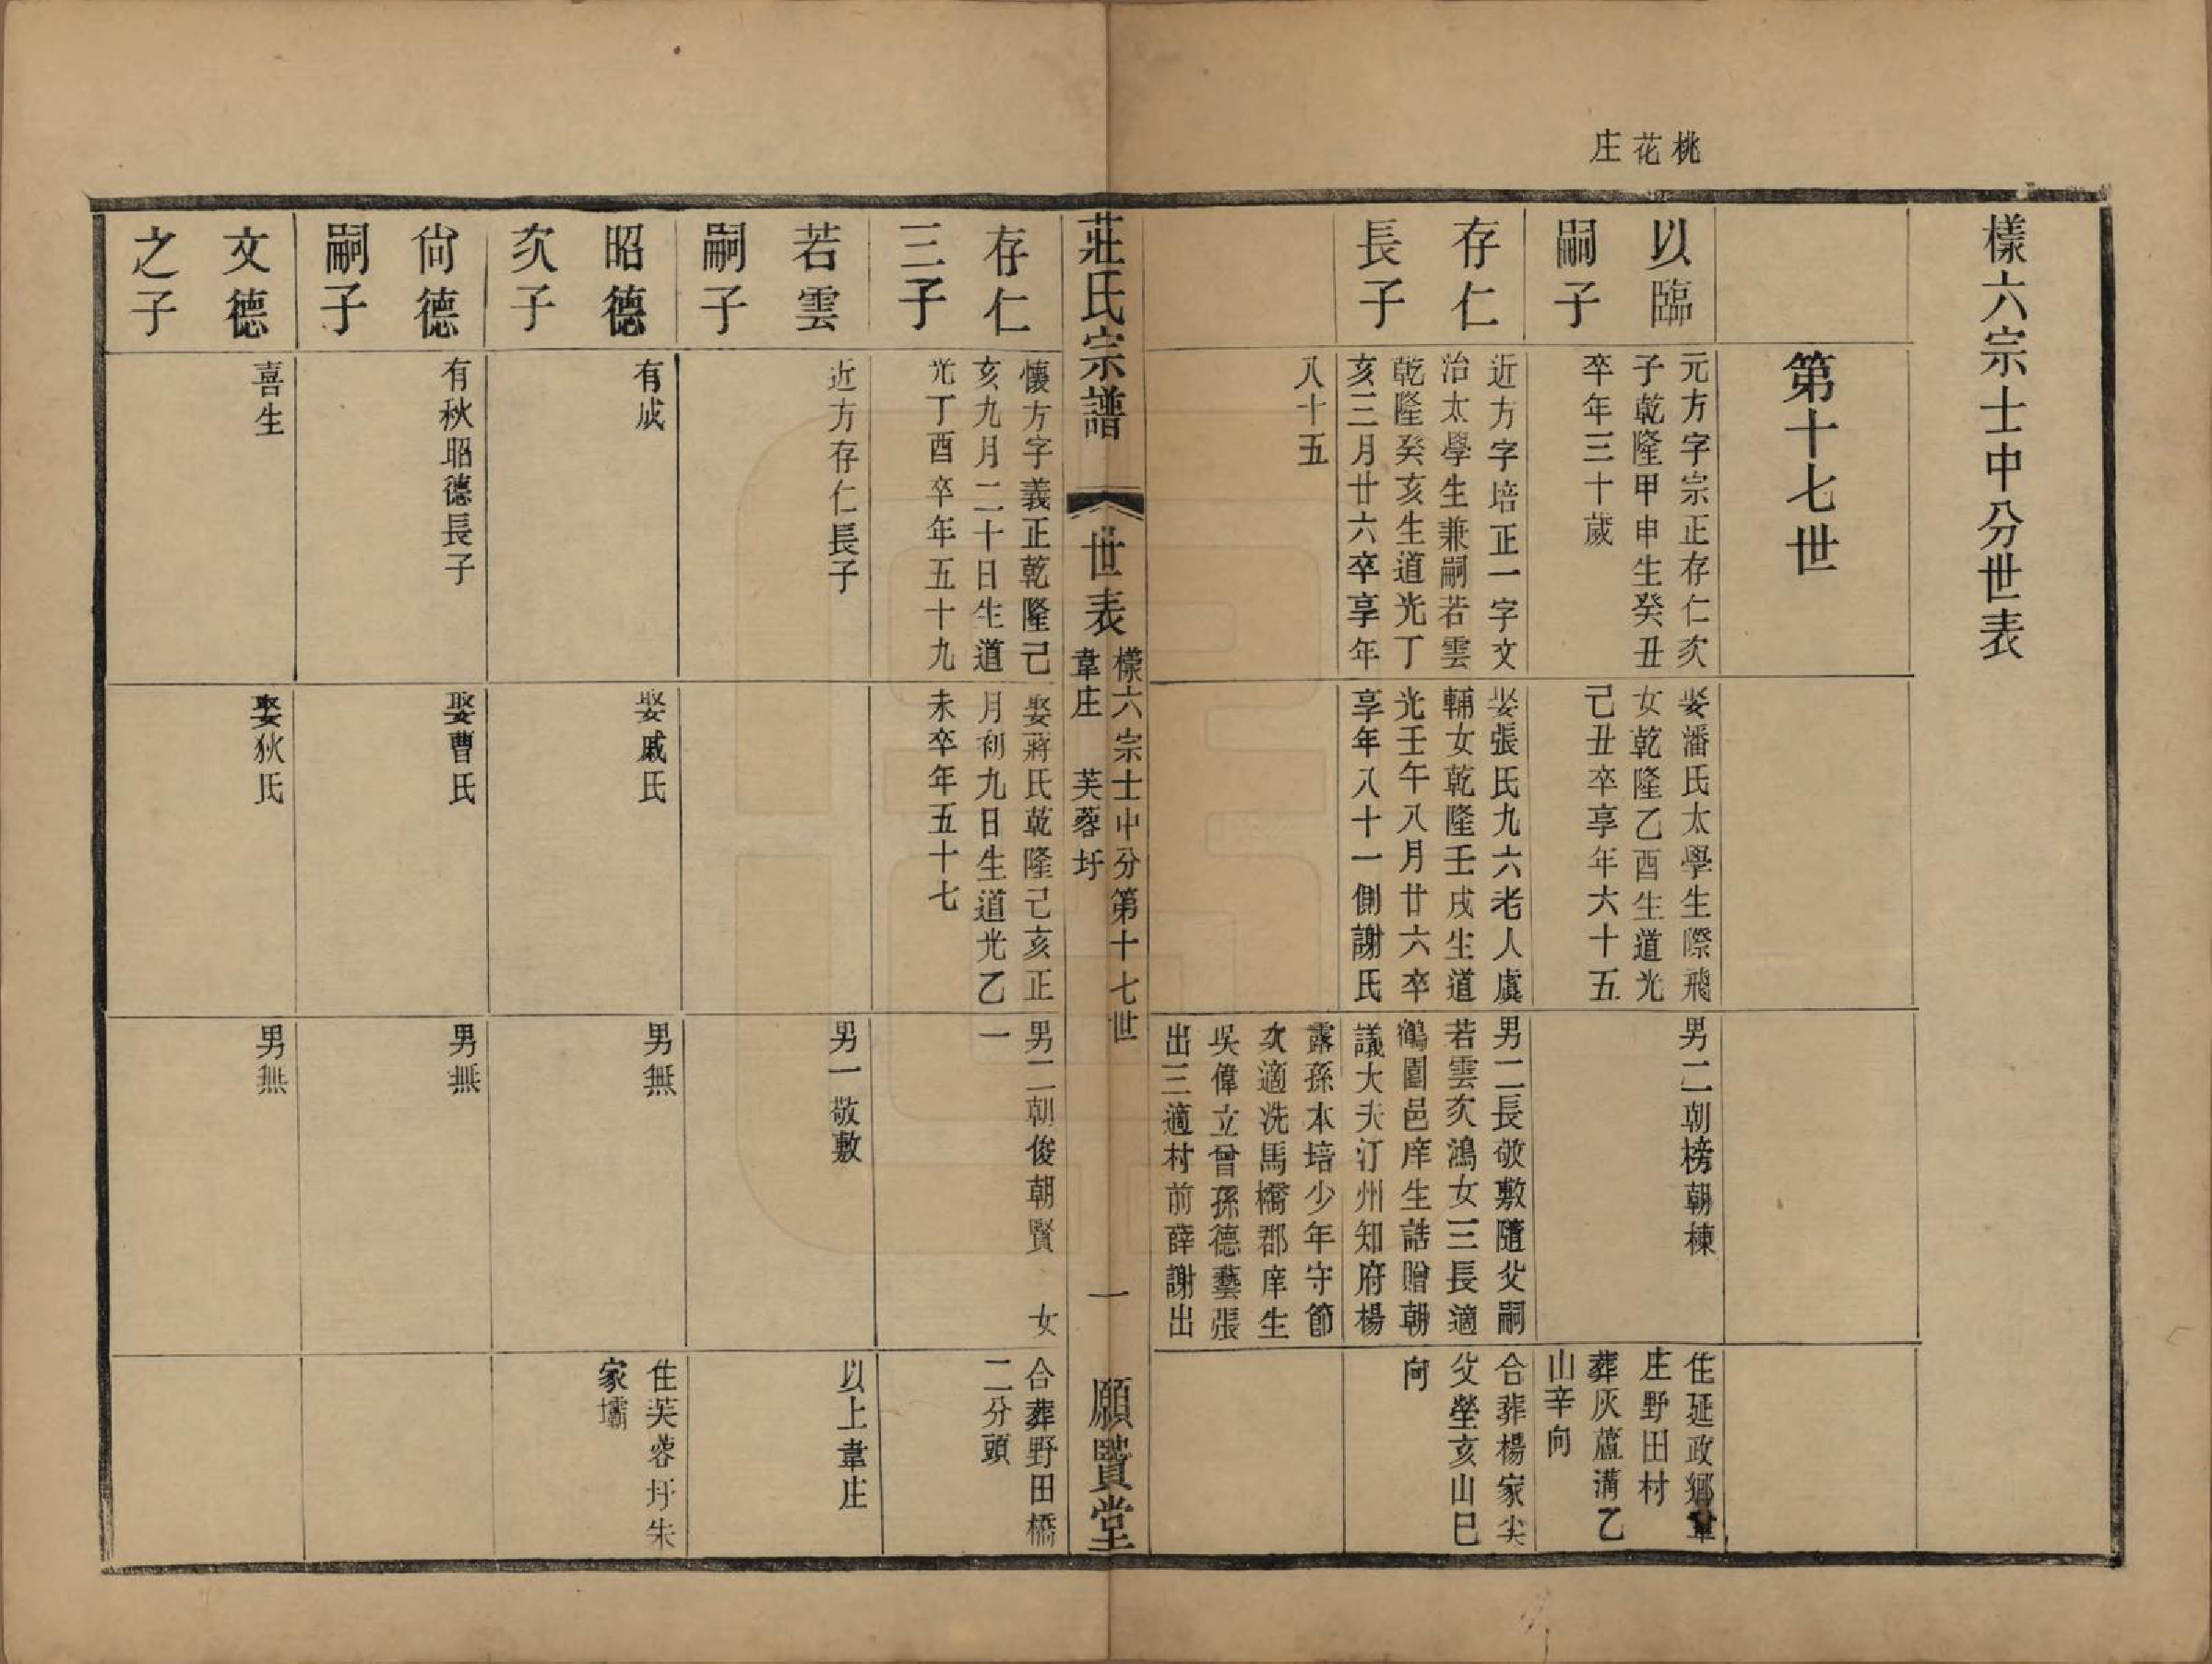 桃花庄
樣六宗士中分世表
第十七世
以臨
嗣子
元方字宗正存仁次
子乾隆甲申生癸丑
卒年三十歲
娶潘氏太學生際飛
女乾隆乙酉生道光
己丑卒享年六十五
男二朝榜朝棟
住延政鄉韋
庄野田村
葬灰蘆溝乙
山辛向
存仁
長子
近方字培正一字文
治太學生兼嗣若雲
乾隆癸亥生道光丁
亥三月廿六卒享年
八十五
娶張氏九六老人虞
輔女乾隆壬戌生道
光壬午八月廿六卒
享年八十一側謝氏
男二長敬敷隨父嗣
若雲次鴻女三長適
鶴園邑庠生誥贈朝
議大夫汀州知府楊
露孫本培少年守節
次適洗馬橋郡庠生
吳偉立曾孫德藝張
出三適村前薛謝出
合葬楊家尖
父塋亥山巳
向
莊氏宗譜
世表
樣六宗士中分第十七世
韋庄 芙蓉圩
一
願賢堂
存仁
三子
懷方字義正乾隆己
亥九月二十日生道
光丁酉卒年五十九
娶蔣氏乾隆己亥正
月初九日生道光乙
未卒年五十七
男二朝俊朝賢 女
一
合葬野田橋
二分頭
若雲
嗣子
近方存仁長子
男一敬敷
以上韋庄
昭德
次子
有成
娶戚氏
男無
住芙蓉圩朱
家壩
尙德
嗣子
有秋昭德長子
娶曹氏
男無
文德
之子
喜生
娶狄氏
男無